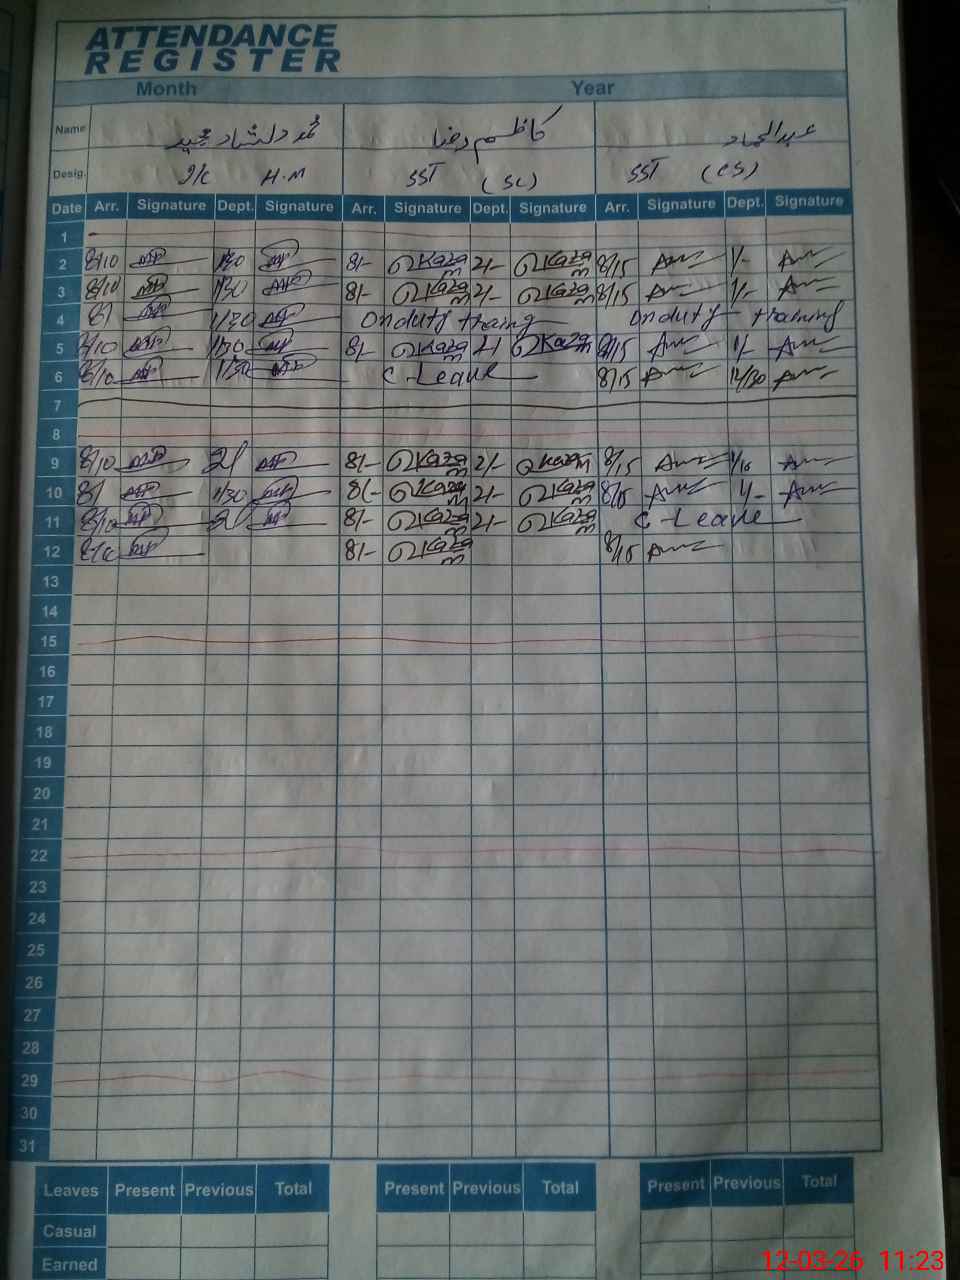 ATTENDANCE
REGISTER
Month Year
Name محمد دلشاد مجید کاظم رضا
Desig. I/C H.M SST (SC) SST (CS)
Date Arr. Signature Dept. Signature Arr. Signature Dept. Signature Arr. Signature Dept. Signature
1
2 8/10 1/30 8/- Kazam 2/- Kazam 8/15 1/-
3 8/10 1/30 8/- Kazam 2/- Kazam 8/15 1/-
4 8/ 1/30 On duty traing On duty training
5 8/10 1/30 8/- Kazam 2/ Kazam 8/15 1/-
6 8/10 1/30 C-Leave 8/15 12/30
7
8
9 8/10 2/ 8/- Kazam 2/- Kazam 8/15
10 8/ 1/30 8/- Kazam 2/- Kazam 8/15 1/-
11 8/10 2/ 8/- Kazam 2/- Kazam C-Leave
12 8/- Kazam 8/15
13
14
15
16
17
18
19
20
21
22
23
24
25
26
27
28
29
30
31
Leaves Present Previous Total Present Previous Total Present Previous Total
Casual
Earned
12-03-26 11:23